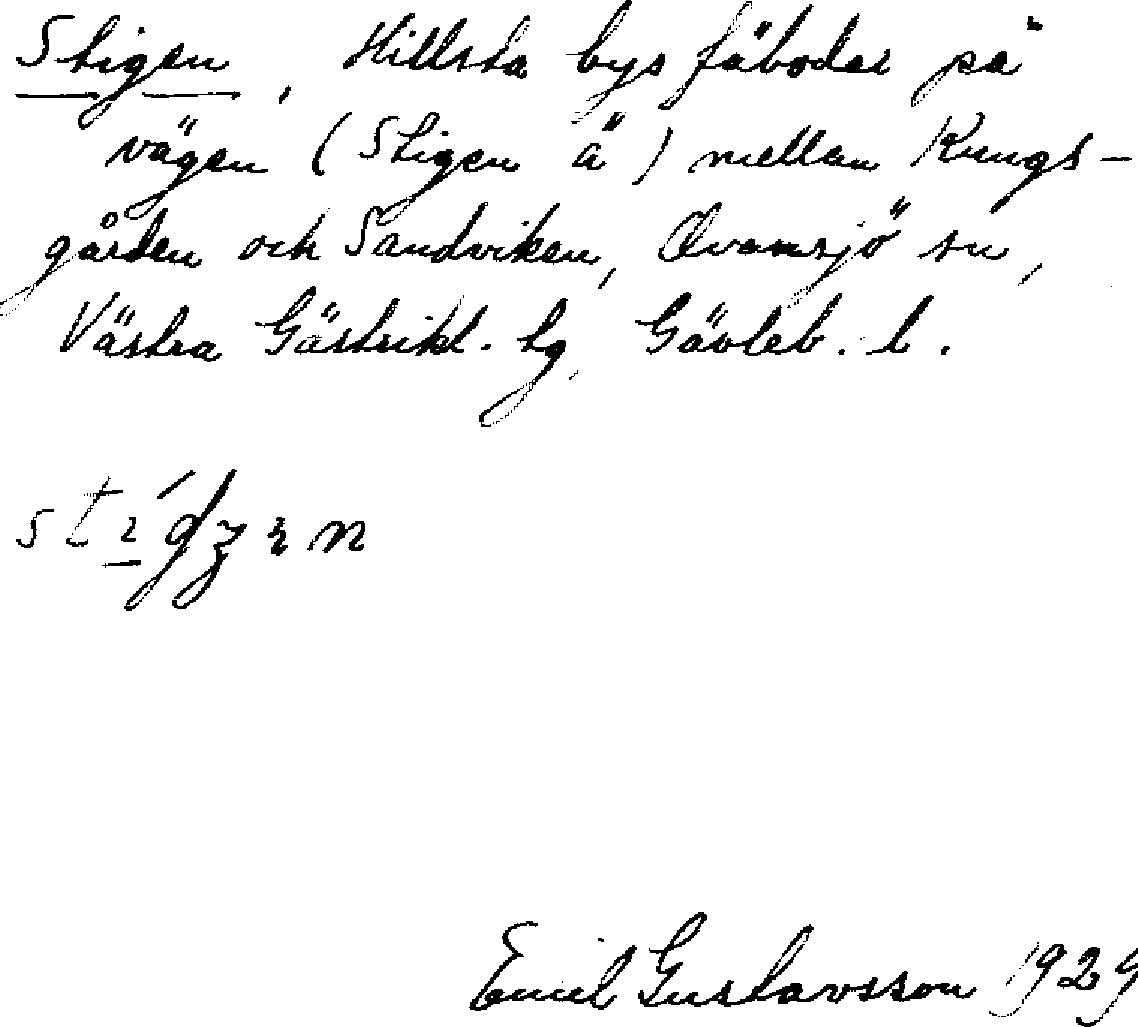 Stigen, Hillsta bys fäbodar på
vägen (Stigen ä) mellan Kungs-
gården och Sandviken, Ovansjö sn,
Västra Gästrikl. tg, Gävleb. l.
Emil Gustavsson 1929